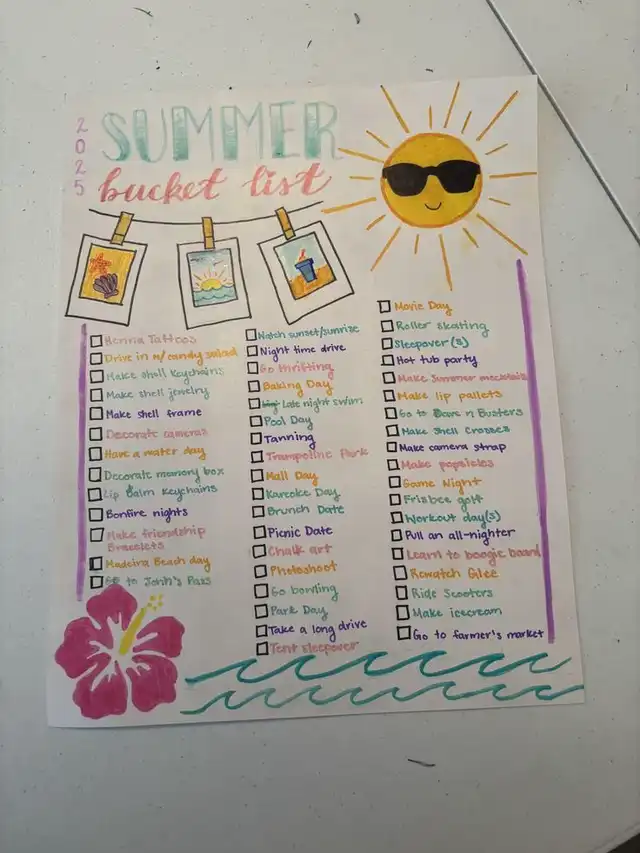 2025
SUMMER
bucket list
Henna Tattoos
Drive in w/ candy salad
Make shell Keychains
Make shell jewelry
Make shell frame
Decorate cameras
Have a water day
Decorate memory box
Lip Balm Keychains
Bonfire nights
Make friendship
Bracelets
Madeira Beach day
to John's Pass
Watch sunset/sunrise
Night time drive
Go thrifting
Baking Day
Late night swim
Pool Day
Tanning
Trampoline Park
Mall Day
Kareoke Day
Brunch Date
Picnic Date
Chalk art
Photoshoot
Go bording
Park Day
Take a long drive
Tent sleepover
Movie Day
Roller skating
Sleepover(s)
Hot tub party
Make summer
Make lip pallets
Go to Dave n Busters
Make Shell Crosses
Make camera strap
Make popsicles
Game Night
Frisbee golf
Workout day(s)
Pull an all-nighter
Learn to boogie board
Rewatch Glee
Ride Scooters
Make icecream
Go to farmer's market